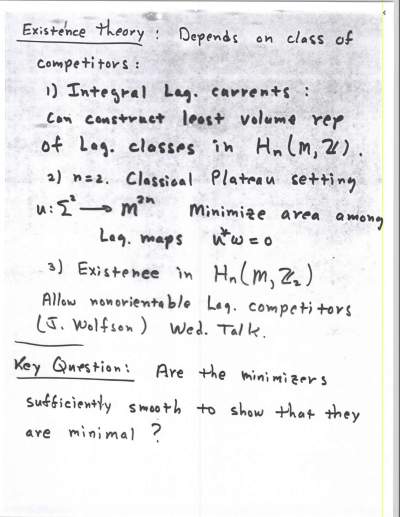 Existence theory : Depends on class of
competitors :
1) Integral Lag. currents :
Can construct least volume rep
of Lag. classes in Hn(M, Z).
2) n=2. Classical Plateau setting
u: Σ² → M²ⁿ Minimize area among
Lag. maps u*ω = 0
3) Existence in Hn(M, Z₂)
Allow nonorientable Lag. competitors
(J. Wolfson) Wed. Talk.
Key Question: Are the minimizers
sufficiently smooth to show that they
are minimal ?